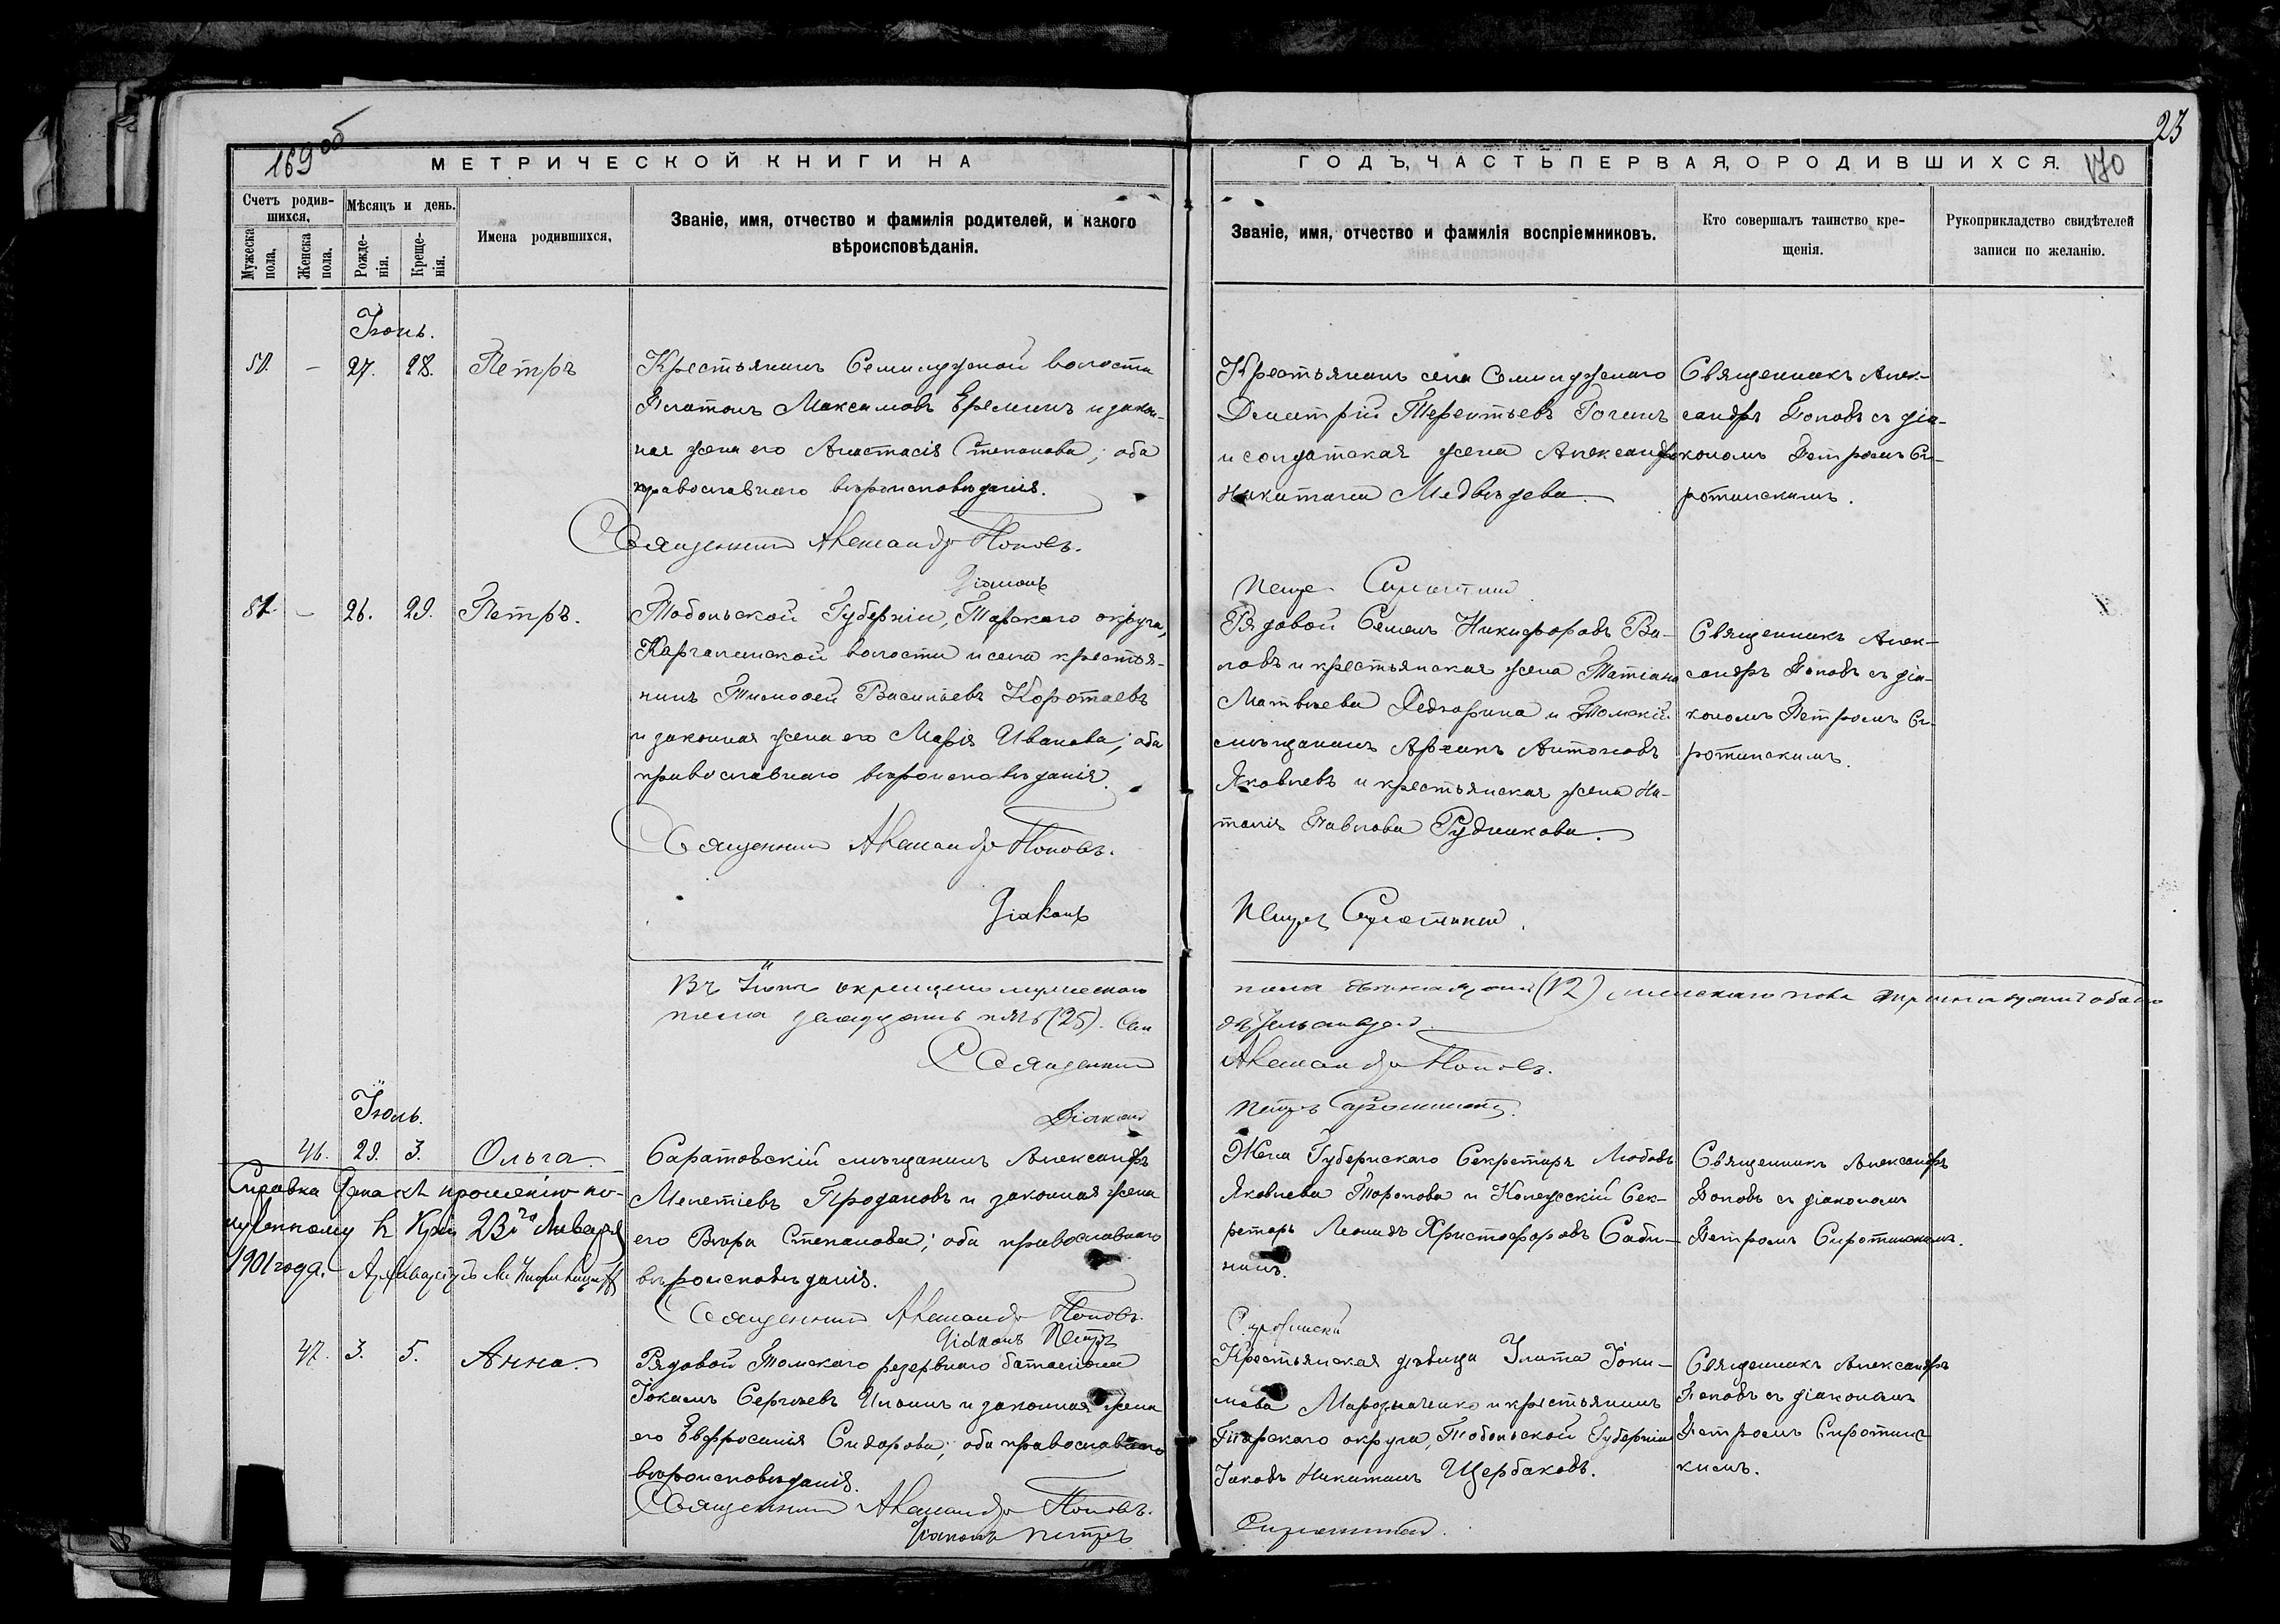 169 об
МЕТРИЧЕСКОЙ КНИГИ НА
Счетъ родив-
шихся,
Мѣсяцъ и день.
Мужеска
пола.
Женска
пола.
Рожде-
нія.
Креще-
нія.
Имена родившихся,
Званіе, имя, отчество и фамилія родителей, и какого
вѣроисповѣданія.
23
ГОДЪ, ЧАСТЬ ПЕРВАЯ, О РОДИВШИХСЯ.
170
Званіе, имя, отчество и фамилія воспріемниковъ.
Кто совершалъ таинство кре-
щенія.
Рукоприкладство свидѣтелей
записи по желанію.
Іюнь.
50. — 27. 28. Петръ
Крестьянинъ Семилужной волости
Платонъ Максимовъ Ереминъ и закон-
ная жена его Анастасія Степанова; оба
православнаго вѣроисповѣданія.
Священникъ Александръ Поповъ.
Діаконъ
Крестьянинъ села Семилужнаго
Димитрій Терентьевъ
и солдатская жена Александра
Никитина Медвѣдева.
Петръ Сиротинскій
Священникъ Алек-
сандръ Поповъ съ діа-
кономъ Петромъ Си-
ротинскимъ.
51. — 26. 29. Петръ.
Тобольской Губерніи, Тарскаго округа,
волости и села крестья-
нинъ Тимофей Васильевъ Коротаевъ
и законная жена его Марія Иванова; оба
православнаго вѣроисповѣданія.
Священникъ Александръ Поповъ.
Діаконъ
Рядовой Семенъ Никифоровъ Ва-
ловъ и крестьянская жена Татіана
Матвѣева и Томскій
мѣщанинъ Антоновъ
Яковлевъ и крестьянская жена На-
талія Павлова Рудникова.
Петръ Сиротинскій.
Священникъ Алек-
сандръ Поповъ съ діа-
кономъ Петромъ Си-
ротинскимъ.
Въ Іюнѣ окрещено мужескаго
пола двѣнадцать (12) женскаго пола тринадцать обоего
пола двадцать пять (25).
Священникъ Александръ Поповъ.
Діаконъ Петръ Сиротинскій.
Іюль.
46. 29. 3. Ольга.
Саратовскій мѣщанинъ Александръ
Мелетіевъ Продановъ и законная жена
его Вѣра Степанова; оба православнаго
вѣроисповѣданія.
Священникъ Александръ Поповъ.
Діаконъ Петръ Сиротинскій
Жена Губернскаго Секретаря Любовь
Яковлева Торопова и Коллежскій Сек-
ретарь Леонидъ Христофоровъ Саби-
нинъ.
Священникъ Александръ
Поповъ съ діакономъ
Петромъ Сиротинскимъ.
Справка дана по прошенію по-
лученному 23го Января
1901 года. Архиваріусъ
47. 3. 5. Анна.
Рядовой Томскаго резервнаго баталіона
Іокимъ Сергѣевъ Ильинъ и законная жена
его Евфросинія Сидорова; оба православнаго
вѣроисповѣданія.
Священникъ Александръ Поповъ.
Діаконъ Петръ
Крестьянская дѣвица Улита Іоки-
мова и крестьянинъ
Тарскаго округа, Тобольской Губерніи
Іаковъ Никитинъ Щербаковъ.
Сиротинскій.
Священникъ Александръ
Поповъ съ діакономъ
Петромъ Сиротинс-
кимъ.